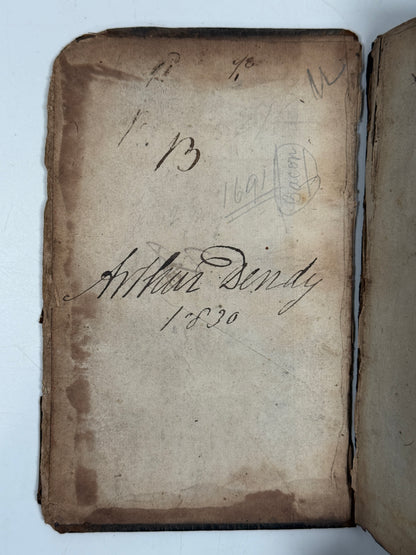 B
1691
Bacon
Arthur Dendy
1830